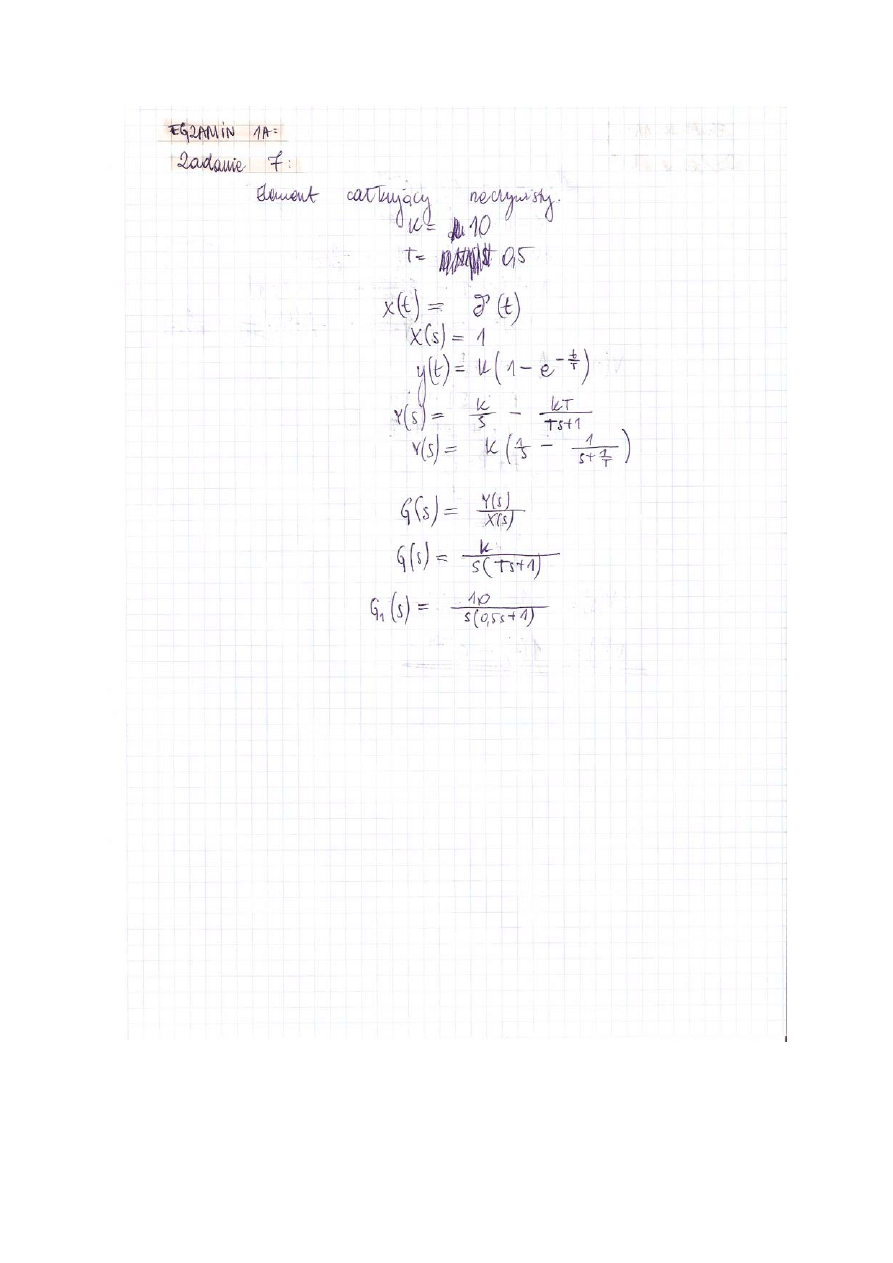 EGZAMIN 1A:
Zadanie 7:
Element całkujący rzeczywisty.
k= 10
T= 0,5
x(t) = δ(t)
X(s) = 1
y(t) = k(1 - e^{-t/T})
Y(s) = k/s - kT/(Ts+1)
Y(s) = k(1/s - 1/(s+1/T))
G(s) = Y(s)/X(s)
G(s) = k/(s(Ts+1))
G₁(s) = 10/(s(0,5s+1))